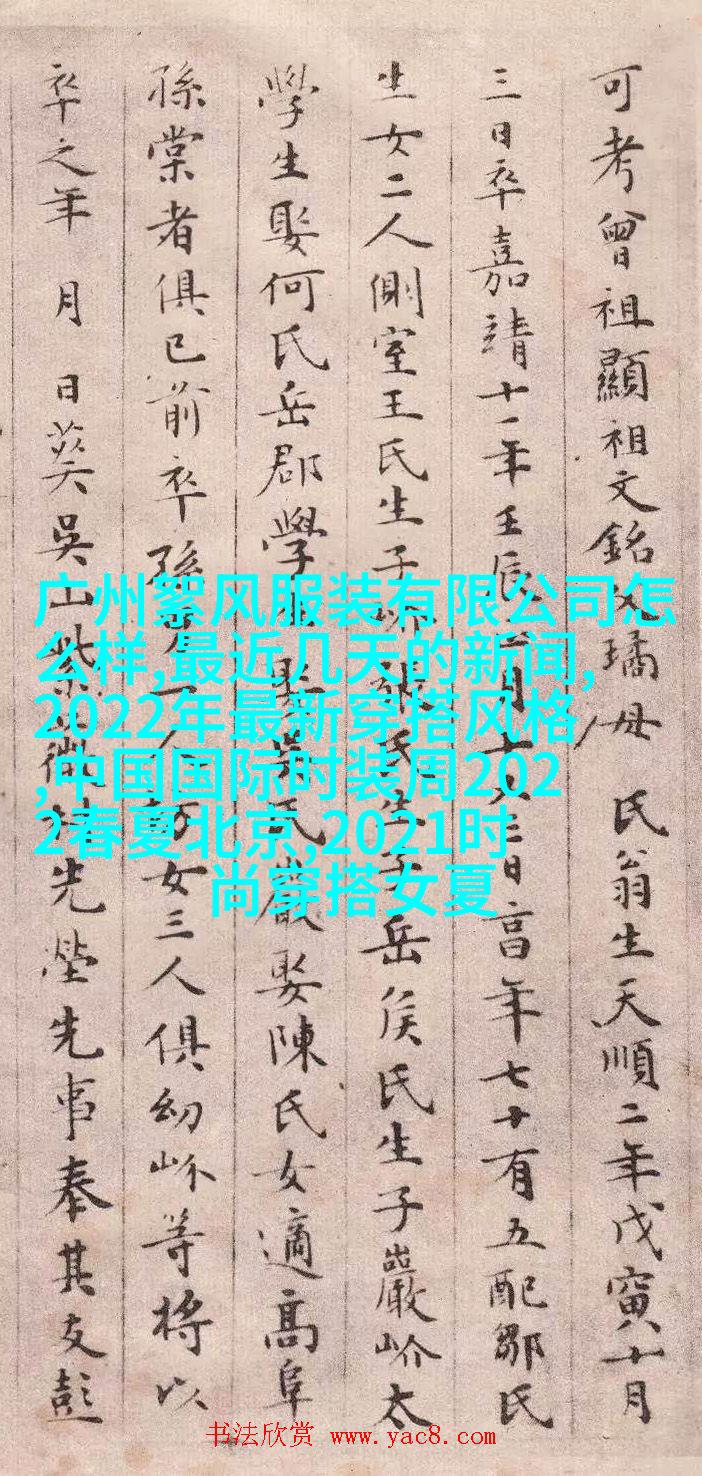 可考曾祖顯祖文銘父璚母 氏翁生天順二年戊寅十月
三日卒嘉靖十一年壬辰月十三日享年七十有五配鄒氏
生女二人側室王氏生子岕張氏生子岳侯氏生子巖岕太
學生娶何氏岳郡學生娶氏巖娶陳氏女適高阜
孫棠者俱已前卒孫男一人女三人俱幼岕等將以
卒之年 月 日葬吳山紫微村先塋先事奉其友彭
广州絮风服装有限公司怎
么样,最近几天的新闻,
2022年最新穿搭风格
,中国国际时装周202
2春夏北京,2021时
尚穿搭女夏
书法欣赏 www.yac8.com